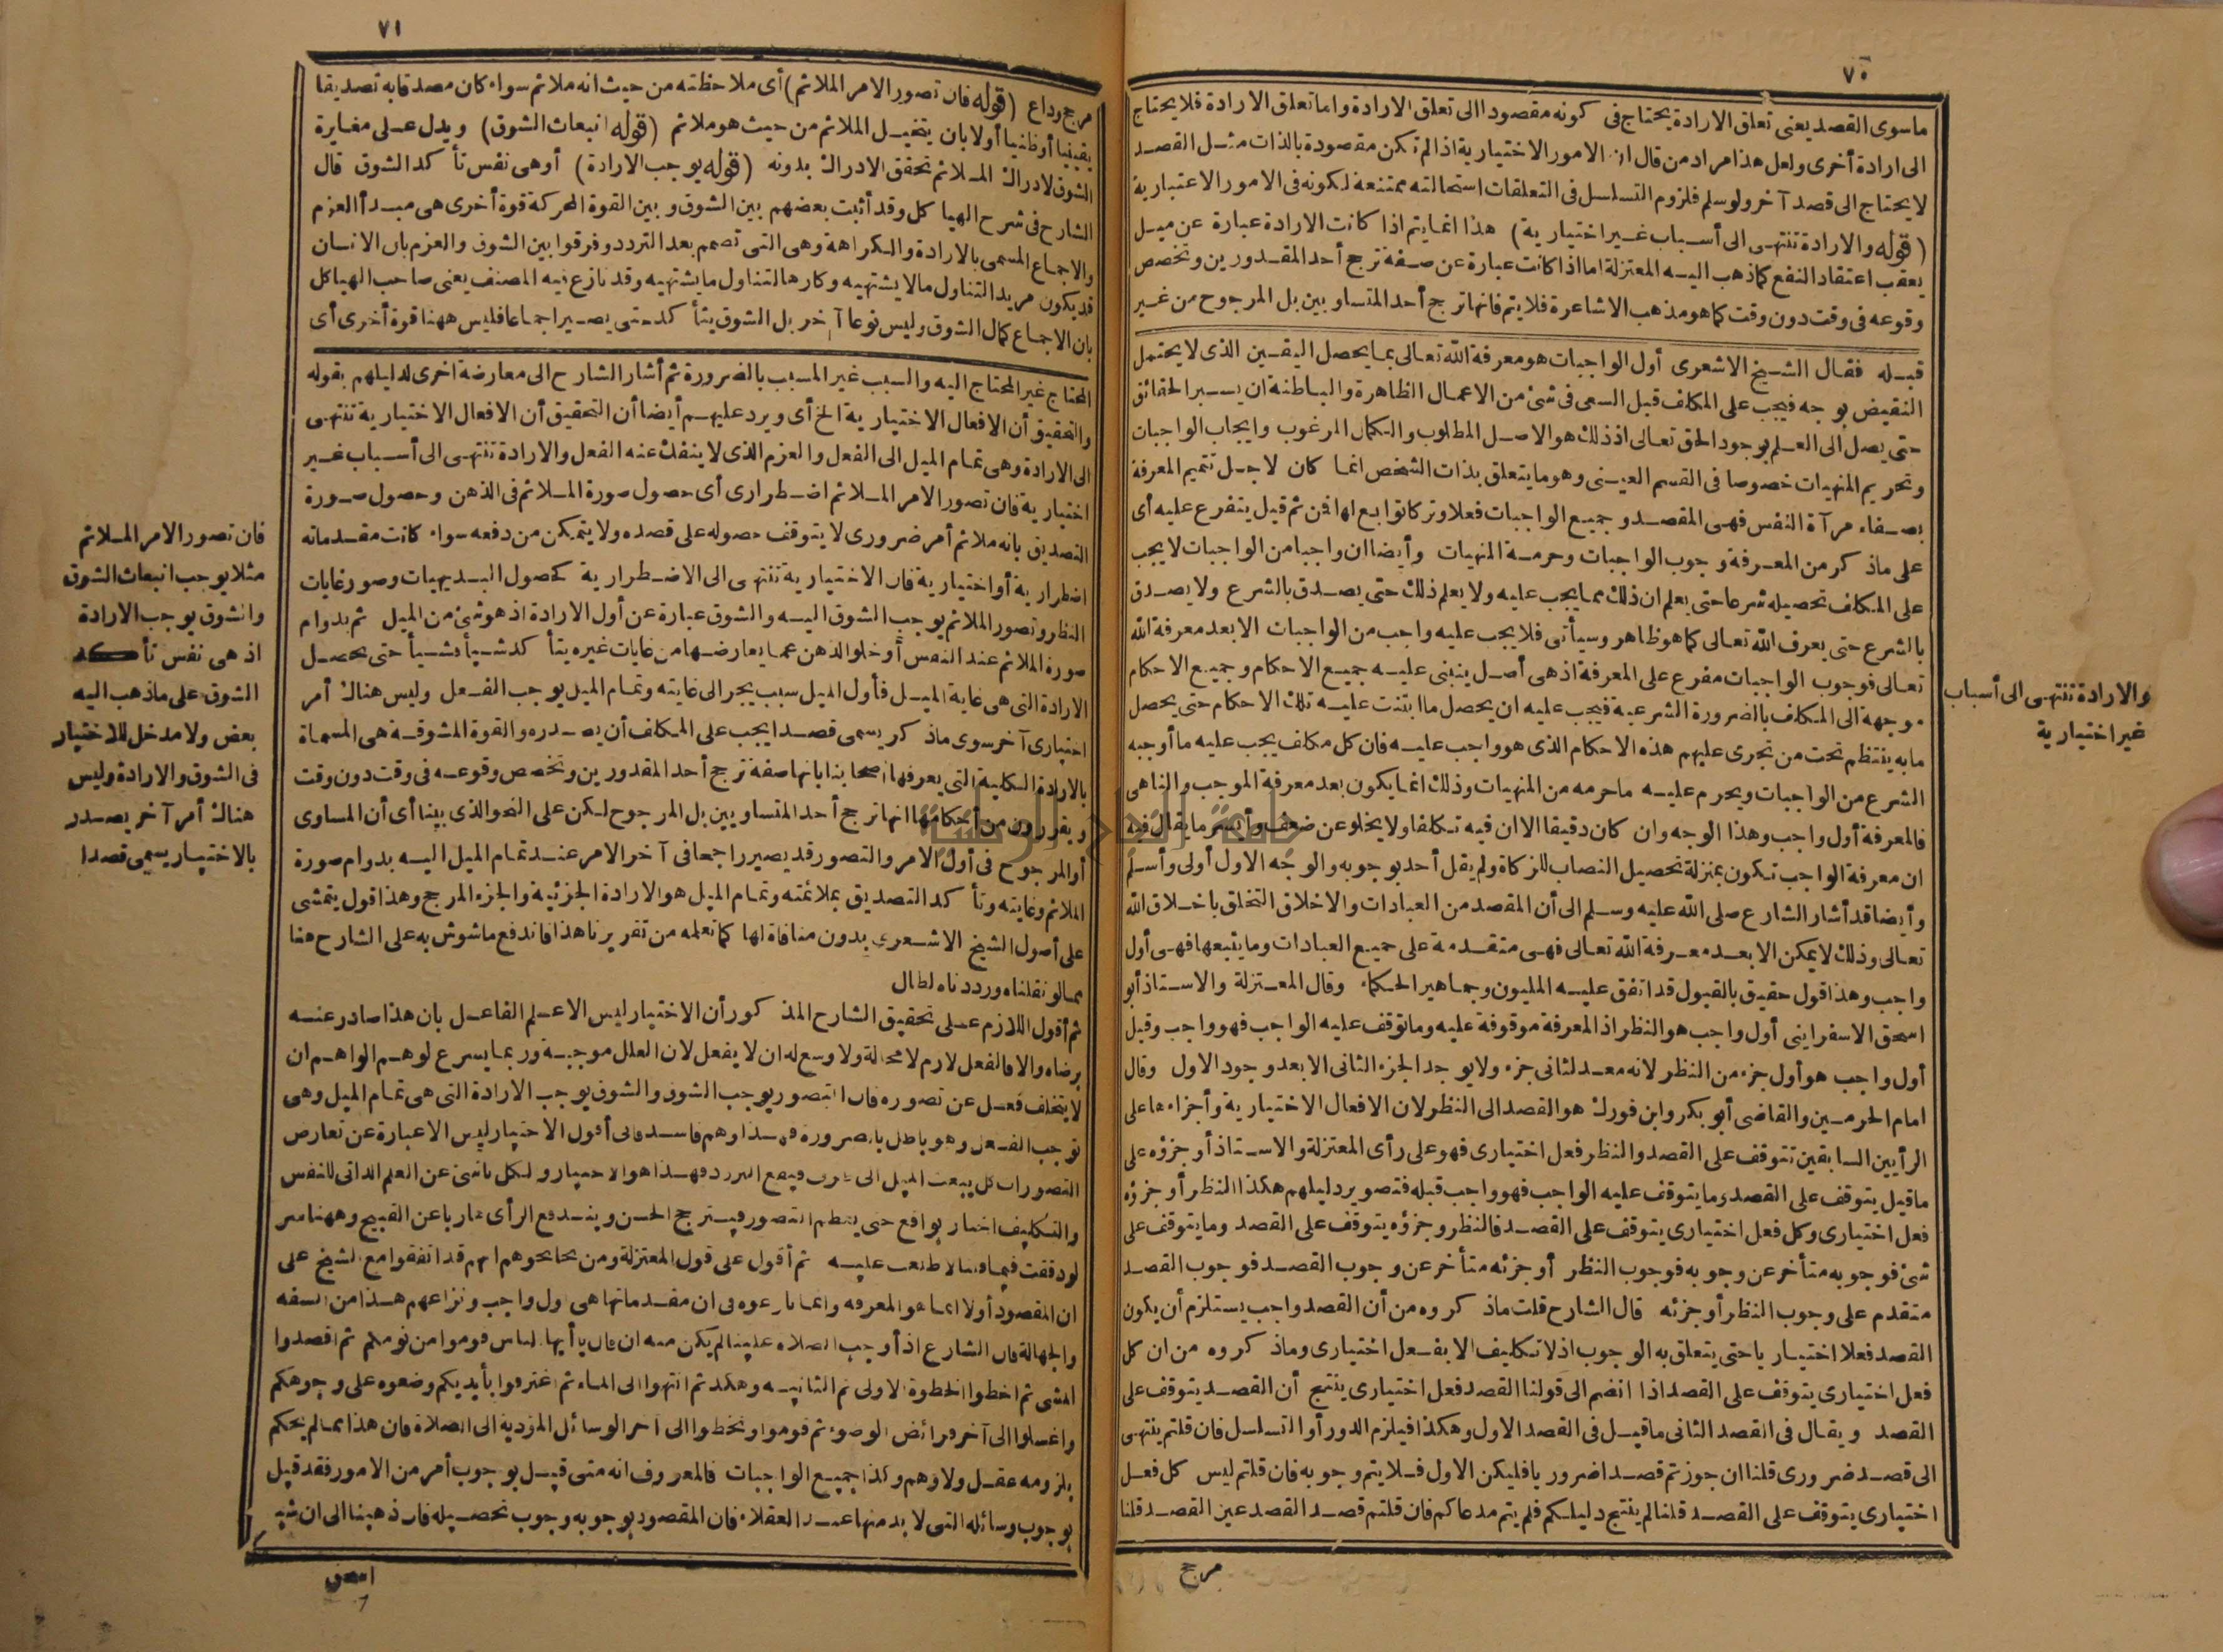 ٧٠
ماسوى القصد يعنى تعلق الارادة يحتاج فى كونه مقصودا الى تعلق الارادة واما تعلق الارادة فلا يحتاج
الى ارادة أخرى ولعل هذا مراد من قال ان الامور الاختيارية اذا لم تكن مقصودة بالذات مثل القصد
لا يحتاج الى قصد آخر ولو سلم فلزوم التسلسل فى التعلقات استحالته ممتنعة لكونه فى الامور الاعتبارية
(قوله والارادة تنتهى الى أسباب غير اختيارية) هذا انما يتم اذا كانت الارادة عبارة عن ميل
يعقب اعتقاد النفع كما ذهب اليه المعتزلة اما اذا كانت عبارة عن صفة ترجح أحد المقدورين وتخصص
وقوعه فى وقت دون وقت كما هو مذهب الاشاعرة فلا يتم فانها ترجح أحد المتساويين بل المرجوح من غير
قبله فقال الشيخ الاشعرى أول الواجبات هو معرفة الله تعالى بما يحصل اليقين الذى لا يحتمل
النقيض بوجه فيجب على المكلف قبل السعى فى شئ من الاعمال الظاهرة والباطنة ان يسبر الحقائق
حتى يصل الى العلم بوجود الحق تعالى اذ ذلك هو الاصل المطلوب والكمال المرغوب وايجاب الواجبات
وتحريم المنهيات خصوصا فى القسم العينى وهو ما يتعلق بذات الشخص انما كان لاجل تتميم المعرفة
بصفاء مرآة النفس فهى المقصد وجميع الواجبات فعلا وتركا توابع لها فن ثم قيل يتفرع عليه أى
على ماذكر من المعرفة وجوب الواجبات وحرمة المنهيات وأيضا ان واجبا من الواجبات لا يجب
على المكلف تحصيله شرعا حتى يعلم ان ذلك مما يجب عليه ولا يعلم ذلك حتى يصدق بالشرع ولا يصدق
بالشرع حتى يعرف الله تعالى كما هو ظاهر وسيأتى فلا يجب عليه واجب من الواجبات الا بعد معرفة الله
تعالى فوجوب الواجبات مفرع على المعرفة اذ هى أصل ينبنى عليه جميع الاحكام وجميع الاحكام
موجهة الى المكلف بالضرورة الشرعية فيجب عليه ان يحصل ما ابتنت عليه تلك الاحكام حتى يحصل
مابه ينتظم تحت من تجرى عليهم هذه الاحكام الذى هو واجب عليه فان كل مكلف يجب عليه ما أوجبه
الشرع من الواجبات ويحرم عليه ماحرمه من المنهيات وذلك انما يكون بعد معرفة الموجب والناهى
فالمعرفة أول واجب وهذا الوجه وان كان دقيقا الا ان فيه تكلفا ولا يخلو عن ضعف وأيسر ما يقال فيه
ان معرفة الواجب تكون بمنزلة تحصيل النصاب للزكاة ولم يقل أحد بوجوبه والوجه الاول أولى وأسلم
وأيضا قد أشار الشارع صلى الله عليه وسلم الى أن المقصد من العبادات والاخلاق التخلق باخلاق الله
تعالى وذلك لا يمكن الا بعد معرفة الله تعالى فهى متقدمة على جميع العبادات وما يتبعها فهى أول
واجب وهذا قول حقيق بالقبول قد اتفق عليه المليون وجماهير الحكماء وقال المعتزلة والاستاذ أبو
اسحق الاسفراينى أول واجب هو النظر اذ المعرفة موقوفة عليه وما توقف عليه الواجب فهو واجب وقيل
أول واجب هو أول جزء من النظر لانه معد لثانى جزء ولا يوجد الجزء الثانى الا بعد وجود الاول وقال
امام الحرمين والقاضى أبو بكر وابن فورك هو القصد الى النظر لان الافعال الاختيارية وأجزاءها على
الرأيين السابقين تتوقف على القصد والنظر فعل اختيارى فهو على رأى المعتزلة والاستاذ أو جزؤه على
ماقيل يتوقف على القصد وما يتوقف عليه الواجب فهو واجب قبله فتصوير دليلهم هكذا النظر أو جزؤه
فعل اختيارى وكل فعل اختيارى يتوقف على القصد فالنظر وجزؤه يتوقف على القصد وما يتوقف على
شئ فوجوبه متأخر عن وجوبه فوجوب النظر أو جزئه متأخر عن وجوب القصد فوجوب القصد
متقدم على وجوب النظر أو جزئه قال الشارح قلت ماذكروه من أن القصد واجب يستلزم أن يكون
القصد فعلا اختياريا حتى يتعلق به الوجوب اذ لا تكليف الا بفعل اختيارى وماذكروه من ان كل
فعل اختيارى يتوقف على القصد اذا انضم الى قولنا القصد فعل اختيارى ينتج أن القصد يتوقف على
القصد ويقال فى القصد الثانى ماقيل فى القصد الاول وهكذا فيلزم الدور أو التسلسل فان قلتم ينتهى
الى قصد ضرورى قلنا ان جوزتم قصدا ضروريا فليكن الاول فلا يتم وجوبه فان قلتم ليس كل فعل
اختيارى يتوقف على القصد قلنا لم ينتج دليلكم فلم يتم مدعاكم فان قلتم قصد القصد عين القصد قلنا
مرجح
والارادة تنتهى الى أسباب
غير اختيارية
٧١
مرجح وداع (قوله فان تصور الامر الملائم) أى ملاحظته من حيث انه ملائم سواء كان مصدقا به تصديقا
يقينيا أو ظنيا أو لا بان يتخيل الملائم من حيث هو ملائم (قوله انبعاث الشوق) ويدل على مغايرة
الشوق لادراك الملائم تحقق الادراك بدونه (قوله يوجب الارادة) أو هى نفس تأكد الشوق قال
الشارح فى شرح الهياكل وقد أثبت بعضهم بين الشوق وبين القوة المحركة قوة أخرى هى مبدأ العزم
والاجماع المسمى بالارادة والكراهة وهى التى تصمم بعد التردد وفرقوا بين الشوق والعزم بان الانسان
قد يكون مريد التناول ما لا يشتهيه وكارها لتناول ما يشتهيه وقد نازع فيه المصنف يعنى صاحب الهياكل
بان الاجماع كمال الشوق وليس نوعا آخر بل الشوق يتأكد حتى يصير اجماعا فليس ههنا قوة أخرى أى
المحتاج غير المحتاج اليه والسبب غير المسبب بالضرورة ثم أشار الشارح الى معارضة أخرى لدليلهم بقوله
والتحقيق أن الافعال الاختيارية الخ أى ويرد عليهم أيضا أن التحقيق أن الافعال الاختيارية تنتهى
الى الارادة وهى تمام الميل الى الفعل والعزم الذى لا ينفك عنه الفعل والارادة تنتهى الى أسباب غير
اختيارية فان تصور الامر الملائم اضطرارى أى حصول صورة الملائم فى الذهن وحصول صورة
التصديق بانه ملائم أمر ضرورى لا يتوقف حصوله على قصده ولا يتمكن من دفعه سواء كانت مقدماته
اضطرارية أو اختيارية فان الاختيارية تنتهى الى الاضطرارية كحصول البديهيات وصور غايات
النظر وتصور الملائم يوجب الشوق اليه والشوق عبارة عن أول الارادة اذ هو شئ من الميل ثم بدوام
صورة الملائم عند النفس أو خلو الذهن عما يعارضها من غايات غيره يتأكد شيأ فشيأ حتى يحصل
الارادة التى هى غاية الميل فأول الميل سبب يجر الى غايته وتمام الميل يوجب الفعل وليس هناك أمر
اختيارى آخر سوى ماذكر يسمى قصدا يجب على المكلف أن يصدره والقوة المشوقة هى المسماة
بالارادة الكلية التى يعرفها أصحابنا بانها صفة ترجح أحد المقدورين وتخصص وقوعه فى وقت دون وقت
ويقررون من أحكامها انها ترجح أحد المتساويين بل المرجوح لكن على النحو الذى بينا أى أن المساوى
أو المرجوح فى أول الامر والتصور قد يصير راجعا فى آخر الامر عند تمام الميل اليه بدوام صورة
الملائم وغايته وتأكد التصديق بملائمته وتمام الميل هو الارادة الجزئية والجزء المرجح وهذا قول يتمشى
على أصول الشيخ الاشعرى بدون منافاة لها كما تعلمه من تقريرنا هذا فاندفع ماشوش به على الشارح هنا
مما لو نقلناه ورددناه لطال
ثم أقول اللازم على تحقيق الشارح المذكور أن الاختيار ليس الا علم الفاعل بان هذا صادر عنه
برضاه والا فالفعل لازم لا محالة ولا وسع له ان لا يفعل لان العلل موجبة وربما يسرع لوهم الواهم ان
لا يتخلف فعل عن تصوره فان التصور يوجب الشوق والشوق يوجب الارادة التى هى تمام الميل وهى
توجب الفعل وهو باطل بالضرورة وهذا وهم فاسد فانى أقول الاختيار ليس الا عبارة عن تعارض
التصورات كل يبعث الميل الى طرف فيقع التردد فهذا هو الاختيار والكل ناشئ عن العلم الذاتى للنفس
والتكليف اخبار بواقع حتى ينتظم التصور فيترجح الحسن ويندفع الرأى عاريا عن القبيح وههنا سر
لو دققت فيما قلنا لاطلعت عليه ثم أقول على قول المعتزلة ومن نحا نحوهم انهم قد اتفقوا مع الشيخ على
ان المقصود أولا انما هو المعرفة وانما نازعوه فى ان مقدماتها هى أول واجب ونزاعهم هذا من السفه
والجهالة فان الشارع اذ أوجب الصلاة علينا لم يكن منه ان قال يا أيها الناس قوموا من نومكم ثم اقصدوا
المشى ثم اخطوا الخطوة الاولى ثم الثانية وهكذا ثم انتهوا الى الماء ثم اغترفوا بأيديكم وضعوه على وجوهكم
واغسلوا الى آخر فرائض الوضوء ثم قوموا وتخطوا الى آخر الوسائل المؤدية الى الصلاة فان هذا مما لم يحكم
بلزومه عقل ولا وهم وكذا جميع الواجبات فالمعروف انه متى قيل بوجوب أمر من الامور فقد قيل
بوجوب وسائله التى لا بد منها عند العقلاء فان المقصود بوجوبه وجوب تحصيله فان ذهبنا الى ان
فان تصور الامر الملائم
مثلا يوجب انبعاث الشوق
والشوق يوجب الارادة
اذ هى نفس تأكد
الشوق على ماذهب اليه
بعض ولا مدخل للاختيار
فى الشوق والارادة وليس
هناك أمر آخر يصدر
بالاختيار يسمى قصدا